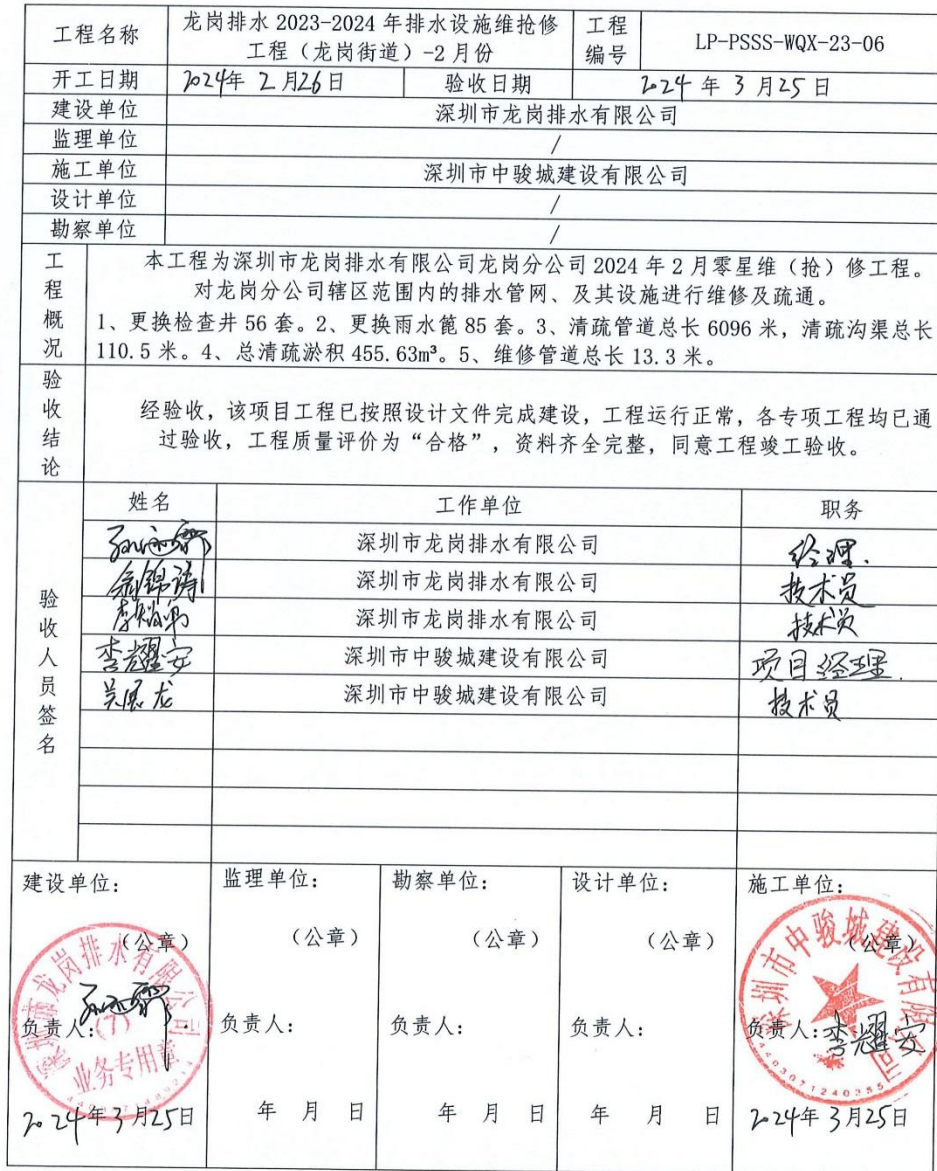 工程名称
龙岗排水 2023-2024 年排水设施维抢修
工程（龙岗街道）-2 月份
工程
编号
LP-PSSS-WQX-23-06
开工日期
2024年 2月26日
验收日期
2024 年 3月25日
建设单位
深圳市龙岗排水有限公司
监理单位
/
施工单位
深圳市中骏城建设有限公司
设计单位
/
勘察单位
/
工程概况
本工程为深圳市龙岗排水有限公司龙岗分公司 2024 年 2 月零星维（抢）修工程。
对龙岗分公司辖区范围内的排水管网、及其设施进行维修及疏通。
1、更换检查井 56 套。2、更换雨水篦 85 套。3、清疏管道总长 6096 米，清疏沟渠总长
110.5 米。4、总清疏淤积 455.63m³。5、维修管道总长 13.3 米。
验收结论
经验收，该项目工程已按照设计文件完成建设，工程运行正常，各专项工程均已通
过验收，工程质量评价为“合格”，资料齐全完整，同意工程竣工验收。
验收人员签名
姓名
工作单位
职务
深圳市龙岗排水有限公司
经理.
深圳市龙岗排水有限公司
技术员
深圳市龙岗排水有限公司
技术员
李耀安
深圳市中骏城建设有限公司
项目经理.
深圳市中骏城建设有限公司
技术员
建设单位：
（公章）
深圳市龙岗排水有限公司
(7)
业务专用章
负责人：
2024年3月25日
监理单位：
（公章）
负责人：
年 月 日
勘察单位：
（公章）
负责人：
年 月 日
设计单位：
（公章）
负责人：
年 月 日
施工单位：
（公章）
深圳市中骏城建设有限公司
负责人：李耀安
2024年3月25日